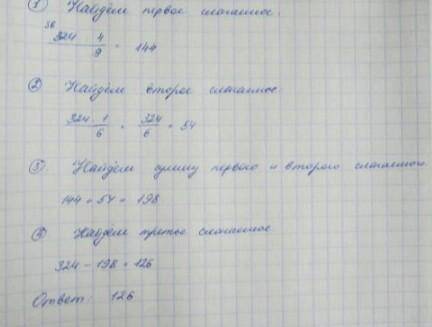 ① Найдём первое слагаемое.
36
324 4
9 = 144
② Найдём второе слагаемое
324 1 / 6 = 324 / 6 = 54
③. Найдём сумму первого и второго слагаемого.
144 + 54 = 198
④ Найдём третье слагаемое
324 - 198 = 126
Ответ: 126